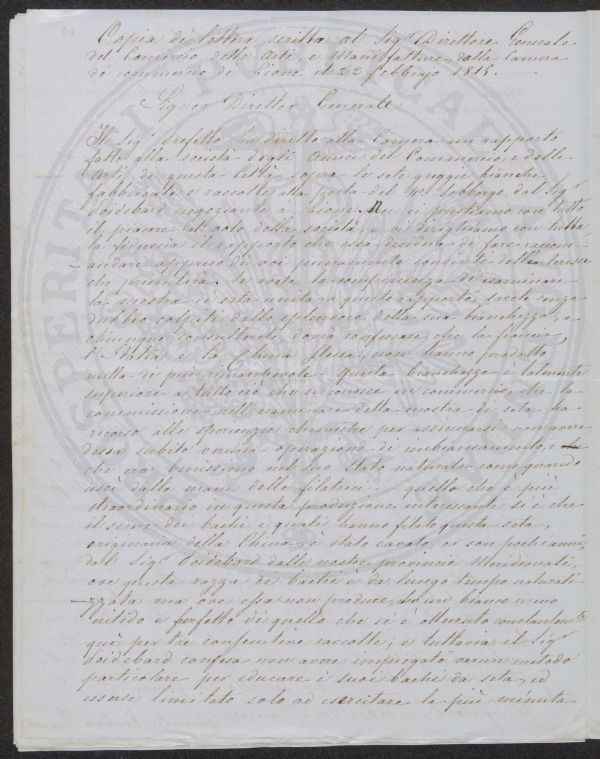 Copia di lettera scritta al Sig.r Direttore Generale
del Comercio delle Arti, e Manifatture, dalla Camera
di commercio di Lione il 22 febbrajo 1815. —
Signor Direttor Generale
Il Sig.r prefetto ha diretto alla Camera un rapporto
fatto alla società degli Amici del Commercio, e delle
Arti di questa Città sopra le sete gregge bianche
fabbricate e raccolte alla porta del sobborgo, dal Sig.r
Poidebard negoziante a Lione. Noi ci prestiamo con tutto
il piacere al voto della società, e vi dirigiamo con tutta
la fiducia il rapporto che essa desidera di fare racom-
-andare appresso di voi pienamente convinti dell'interesse
che presenterà. Se avete la compiacenza di esaminare
la mostra di seta unita a questo rapporto, sarete senza
dubbio colpito dallo splendore della sua bianchezza, e
chiunque consulterete dovrà confessare che la francia,
l'Italia e la China stessa, non hanno prodotto
nulla di più rimarchevole. Questa bianchezza è talmente
superiore a tutto ciò che si conosce in commercio, che la
commissione nell'esaminare della mostra di seta ha
ricorso alle sperienze chimiche per assicurarsi non avere
dessa subito veruna operazione di imbiancamento, e
che era benissimo nel suo stato naturale come quando
uscì dalle mani delle filatrici. quello che è più
straordinario in questa produzione interessante si è che
il seme dei bachi i quali hanno filato questa seta,
originaria della China, è stato cavato, or son pochi anni,
dal Sig.r Poidebard dalle nostre provincie Meridionali,
ove questa razza di bachi è da lungo tempo naturali-
-zzata ma ove essa non produce, che un bianco meno
nitido e perfetto di quello che si è ottenuto constantem.te
quì per tre consecutive raccolte; e tuttavia il Sig.r
Poidebard confessa non avere impiegato verun metodo
particolare per educare i suoi bachi da seta, ed
essersi limitato solo ad esercitare la più minuta